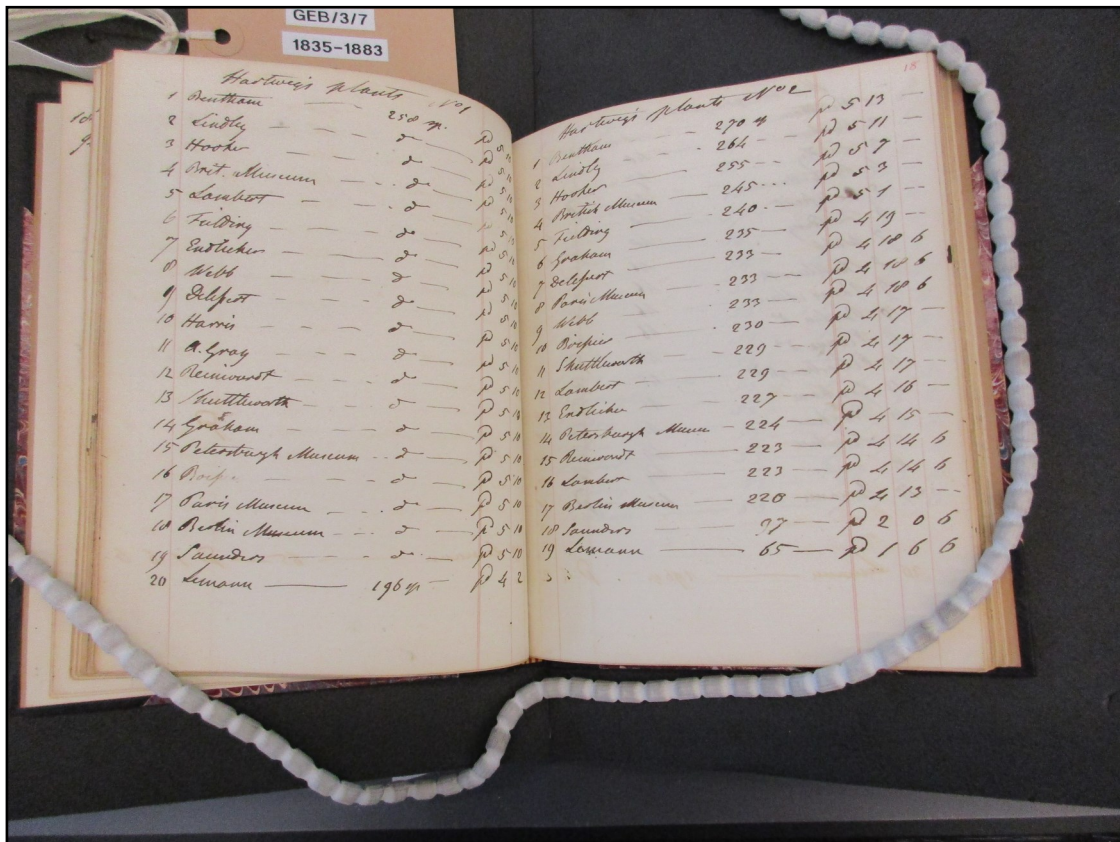 GEB/3/7
1835-1883
Hartwegs plants No 1
1 Bentham — 258 sp.
2 Lindley — do — pd 5
3 Hooker — do — pd 5
4 Brit. Museum — do — pd 5
5 Lambert — do — pd 5
6 Fielding — do — pd 5
7 Endlicher — do — pd 5
8 Webb — do — pd 5
9 Delessert — do — pd 5
10 Harris — do — pd 5
11 A. Gray — do — pd 5 10
12 Reinwardt — do — pd 5 10
13 Shuttleworth — do — pd 5 10
14 Graham — do — pd 5 10
15 Petersburgh Museum — do — pd 5 10
16 Boiss — do — pd 5 10
17 Paris Museum — do — pd 5 10
18 Berlin Museum — do — pd 5 10
19 Saunders — do — pd 5 10
20 Lemann — 196 sp — pd 4 2
18
Hartwegs plants No 2
1 Bentham — 270 sp pd 5 13 —
2 Lindley — 264 — pd 5 11 —
3 Hooker — 255 — pd 5 7 —
4 British Museum 245 pd 5 3 —
5 Fielding — 240 — pd 5 1 —
6 Graham — 235 — pd 4 19 —
7 Delessert — 233 — pd 4 18 6
8 Paris Museum — 233 — pd 4 18 6
9 Webb — 233 — pd 4 18 6
10 Boissier — 230 — pd 4 17 —
11 Shuttleworth — 229 — pd 4 17 —
12 Lambert — 229 — pd 4 17 —
13 Endlicher — 227 — pd 4 16 —
14 Petersburgh Museum — 224 — pd 4 15 —
15 Reinwardt — 223 — pd 4 14 6
16 Lambert — 223 — pd 4 14 6
17 Berlin Museum — 220 — pd 4 13 —
18 Saunders — 97 — pd 2 0 6
19 Lemann — 65 — pd 1 6 6